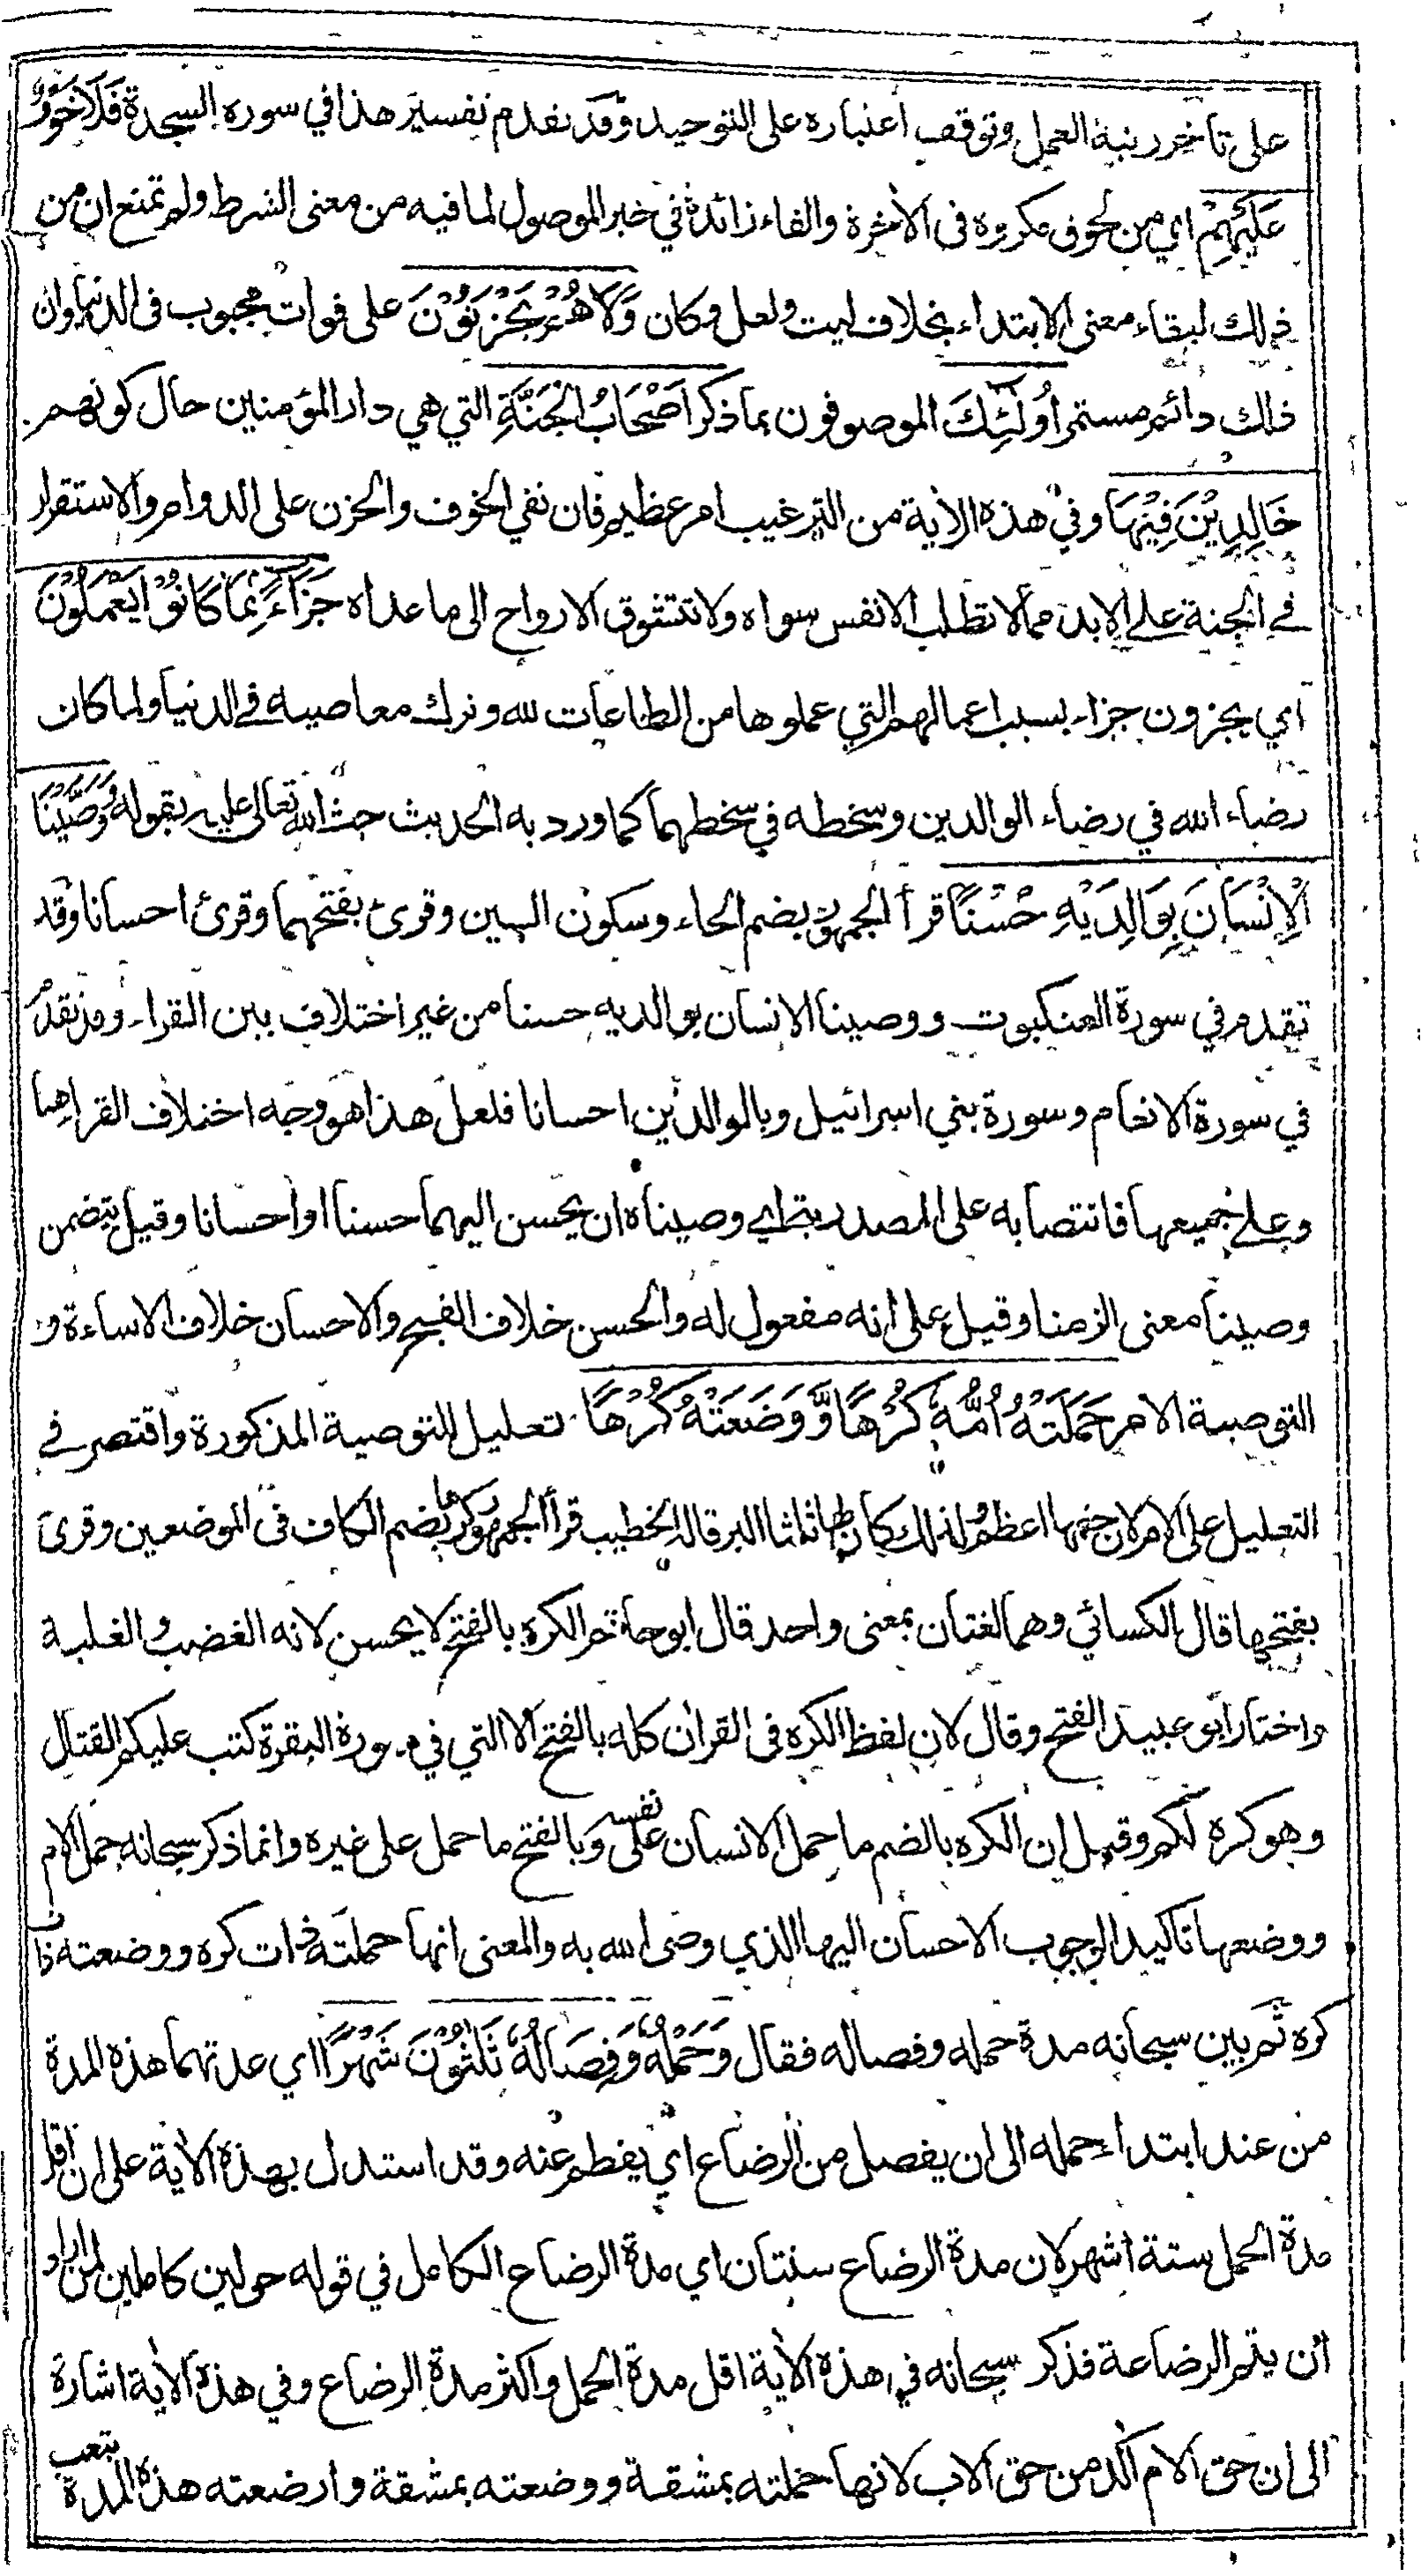 على تأخر رتبة العمل وتوقف اعتباره على التوحيد وقد تقدم تفسير هذا في سورة السجدة فَلَا خَوْفٌ
عَلَيْهِمْ اي من لحوق مكروه فى الآخرة والفاء زائدة في خبر الموصول لما فيه من معنى الشرط ولم تمنع ان من
ذلك لبقاء معنى الابتداء بخلاف ليت ولعل وكان وَلَا هُمْ يَحْزَنُوْنَ على فوات محبوب فى الدنيا وان
ذلك دائم مستمر أُولٰئِكَ الموصوفون بما ذكر أَصْحَابُ الْجَنَّةِ التي هي دار المؤمنين حال كونهم
خَالِدِيْنَ فِيْهَا وفي هذه الآية من الترغيب امر عظيم فان نفي الخوف والحزن على الدوام والاستقرار
في الجنة على الابد مما لا تطلب الانفس سواه ولا تتشوق الارواح الى ما عداه جَزَاءً بِمَا كَانُوْا يَعْمَلُوْنَ
اي يجزون جزاء بسبب اعمالهم التي عملوها من الطاعات لله وترك معاصيه في الدنيا ولما كان
رضاء الله في رضاء الوالدين وسخطه في سخطهما كما ورد به الحديث حث الله تعالى عليه بقوله وَوَصَّيْنَا
الْاِنْسَانَ بِوَالِدَيْهِ حُسْنًا قرأ الجمهور بضم الحاء وسكون السين وقرئ بفتحهما وقرئ احسانا وقد
تقدم في سورة العنكبوت ووصينا الانسان بوالديه حسنا من غير اختلاف بين القراء وقد تقدم
في سورة الانعام وسورة بني اسرائيل وبالوالدين احسانا فلعل هذا هو وجه اختلاف القراء هنا
وعلى جميعها فانتصابه على المصدرية اي وصيناه ان يحسن اليهما حسنا او احسانا وقيل بتضمن
وصينا معنى الزمنا وقيل على انه مفعول له والحسن خلاف القبيح والاحسان خلاف الاساءة و
التوصية الامر حَمَلَتْهُ أُمُّهُ كُرْهًا وَّوَضَعَتْهُ كُرْهًا تعليل للتوصية المذكورة واقتصر في
التعليل على الام لان حقها اعظم ولذلك كان لها ثلثا البر قاله الخطيب قرأ الجمهور كرها بضم الكاف فى الموضعين وقرئ
بفتحها قال الكسائي وهما لغتان بمعنى واحد قال ابو حاتم الكره بالفتح لا يحسن لانه الغضب والغلبة
واختار ابو عبيد الفتح وقال لان لفظ الكره فى القرآن كله بالفتح الا التي في سورة البقرة كتب عليكم القتال
وهو كره لكم وقيل ان الكره بالضم ما حمل الانسان على نفسه وبالفتح ما حمل على غيره وانما ذكر سبحانه حمل الام
ووضعها تاكيد الوجوب الاحسان اليها الذي وصى الله به والمعنى انها حملته ذات كره ووضعته ذات
كره ثم بين سبحانه مدة حمله وفصاله فقال وَحَمْلُهُ وَفِصَالُهُ ثَلٰثُوْنَ شَهْرًا اي عدتهما هذه المدة
من عند ابتداء حمله الى ان يفصل من الرضاع اي يفطم عنه وقد استدل بهذه الآية على ان اقل
مدة الحمل ستة اشهر لان مدة الرضاع سنتان اي مدة الرضاع الكامل في قوله حولين كاملين لمن اراد
ان يتم الرضاعة فذكر سبحانه في هذه الآية اقل مدة الحمل واكثر مدة الرضاع وفي هذه الآية اشارة
الى ان حق الام آكد من حق الاب لانها حملته بمشقة ووضعته بمشقة وارضعته هذه المدة بتعب